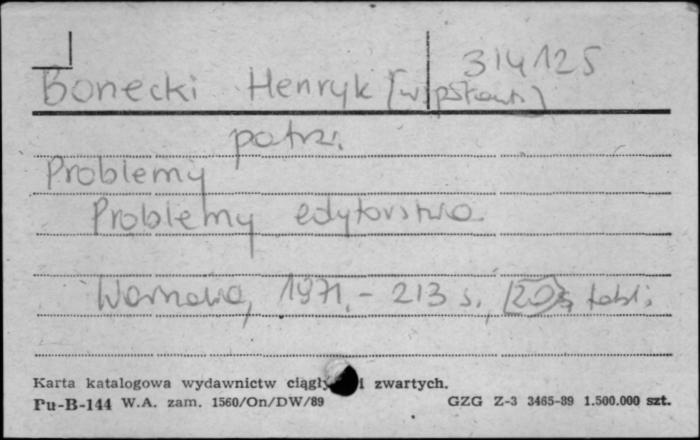 314125
Bonecki Henryk [współaut.]
patrz.
Problemy
Problemy edytorstwa.
Warszawa, 1971. - 213 s., tabl.
Karta katalogowa wydawnictw ciągłych i zwartych.
Pu-B-144 W.A. zam. 1560/On/DW/89 GZG Z-3 3465-89 1.500.000 szt.